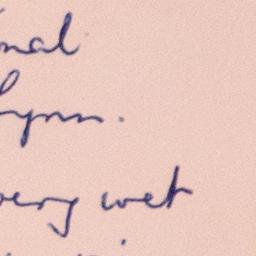 nal
Lynn.
very wet